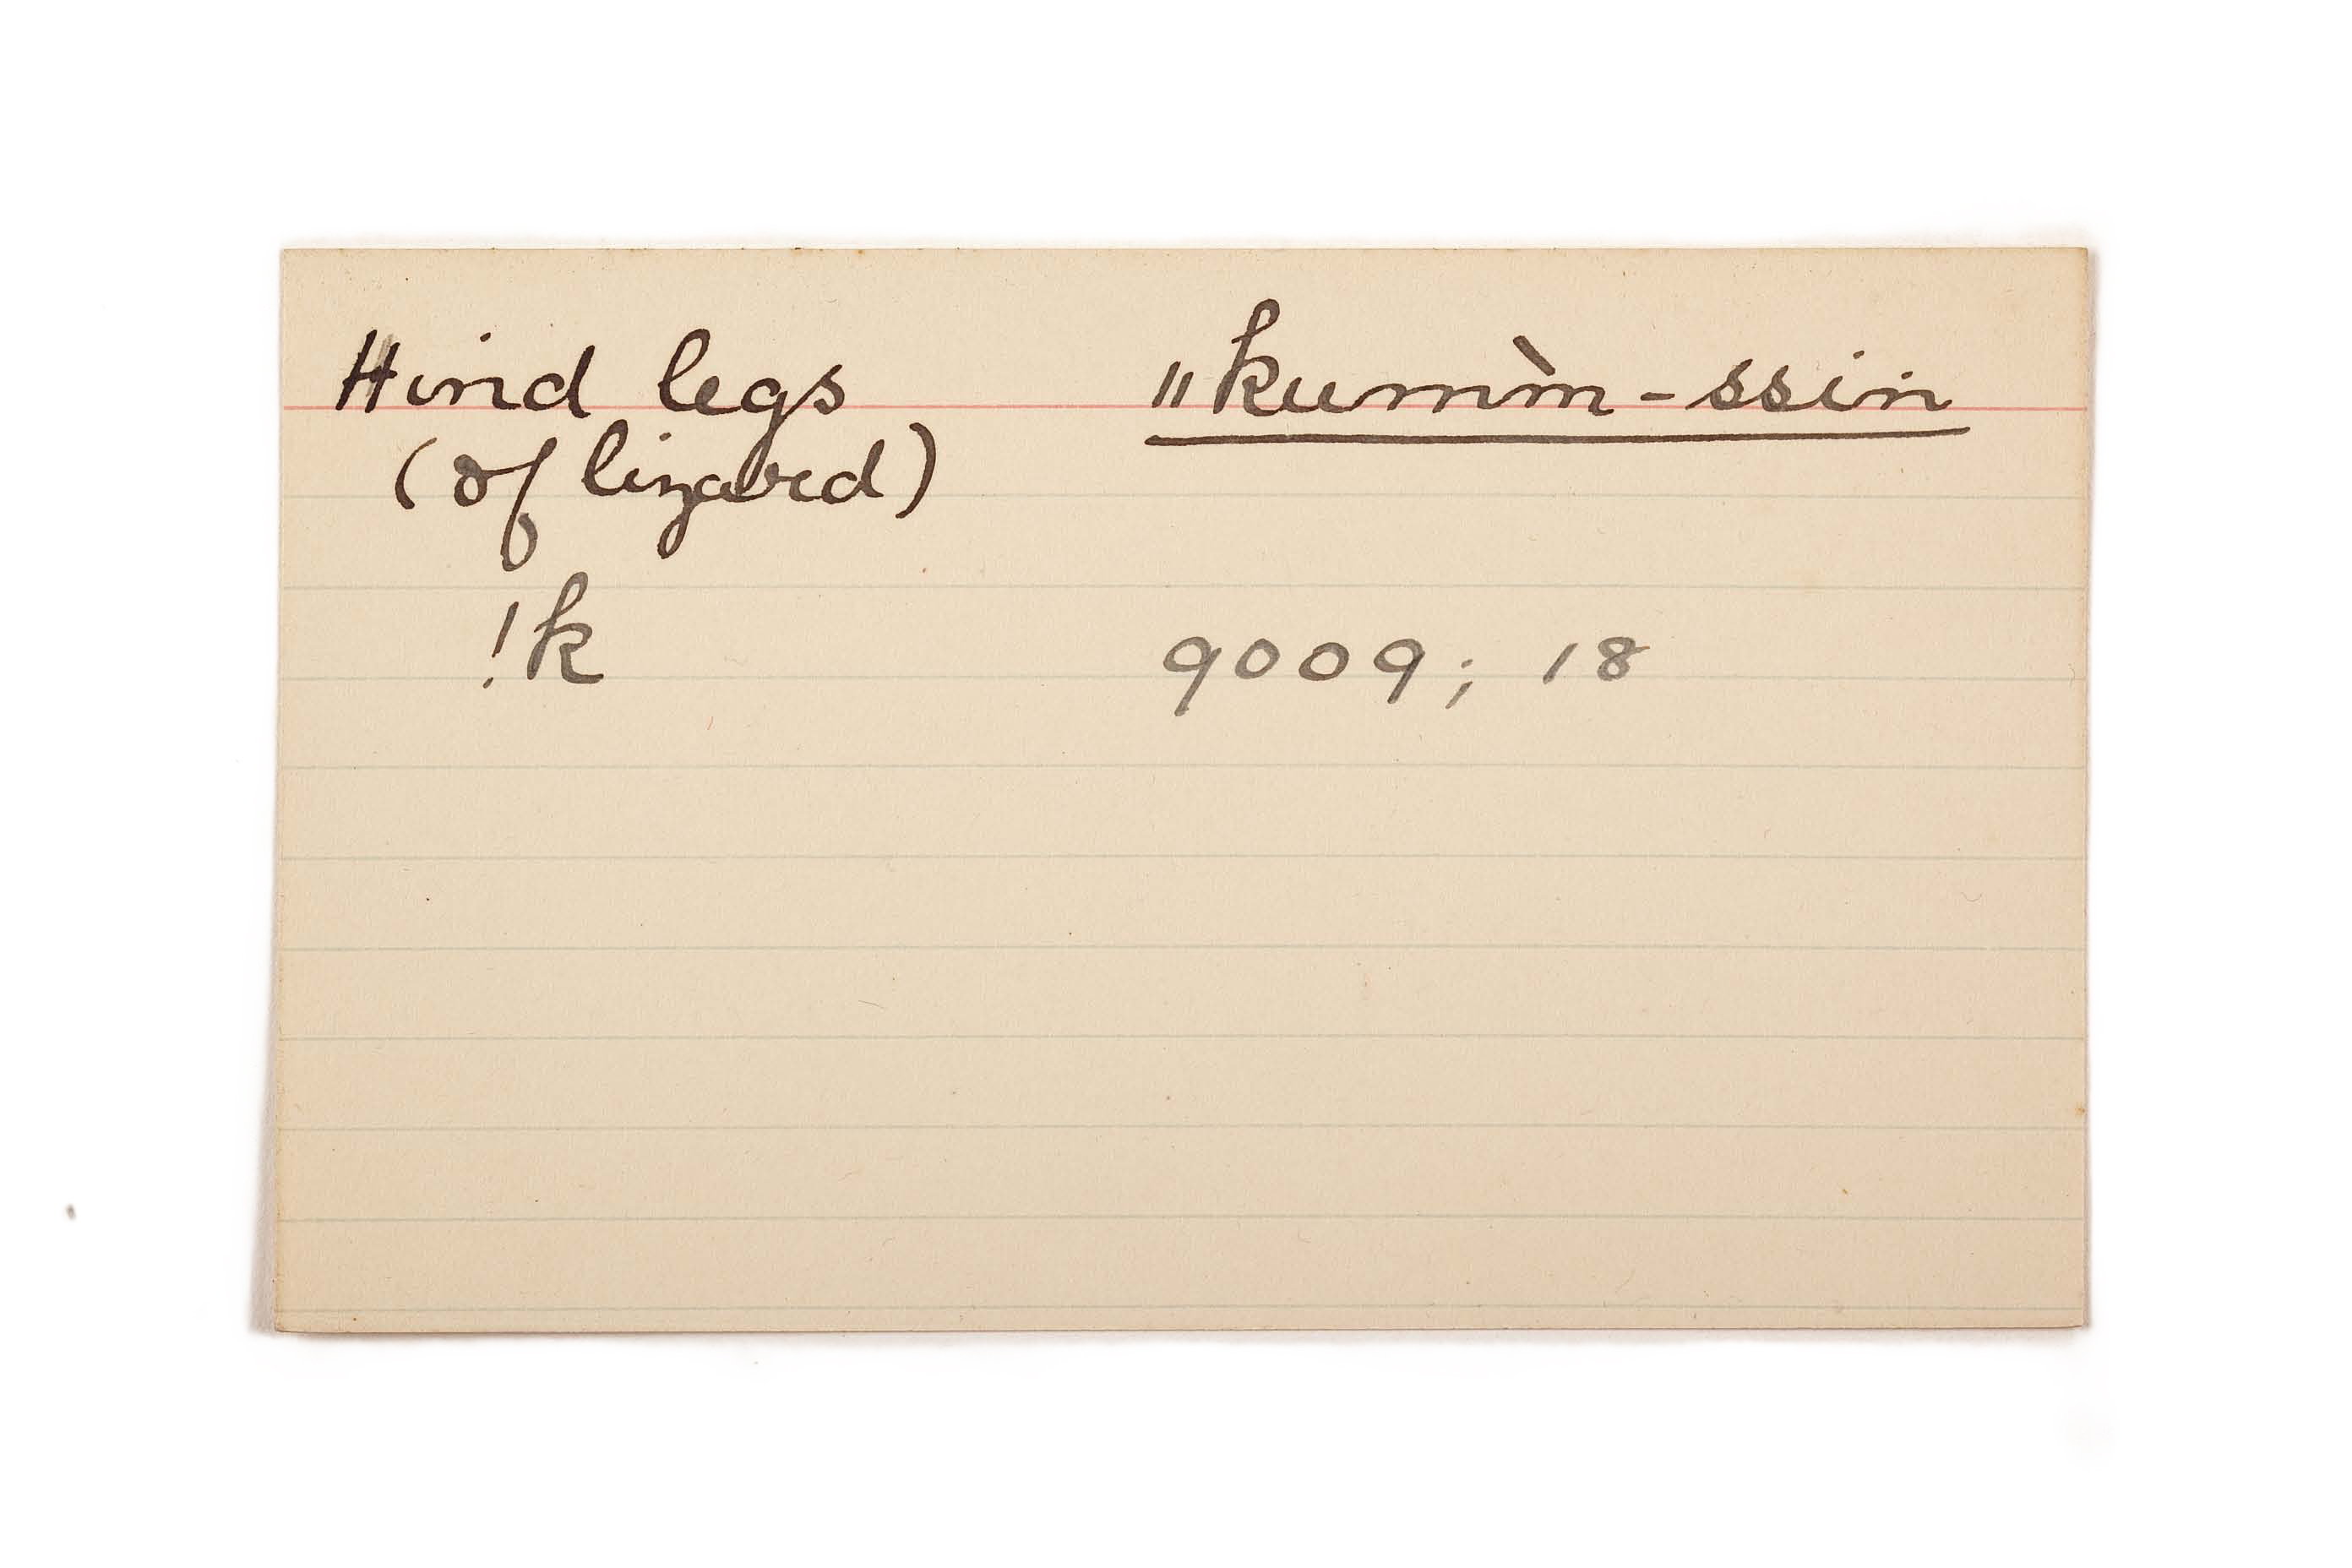 Hind legs ǁkumm̀-ssin
(of lizard)
!k 9009; 18